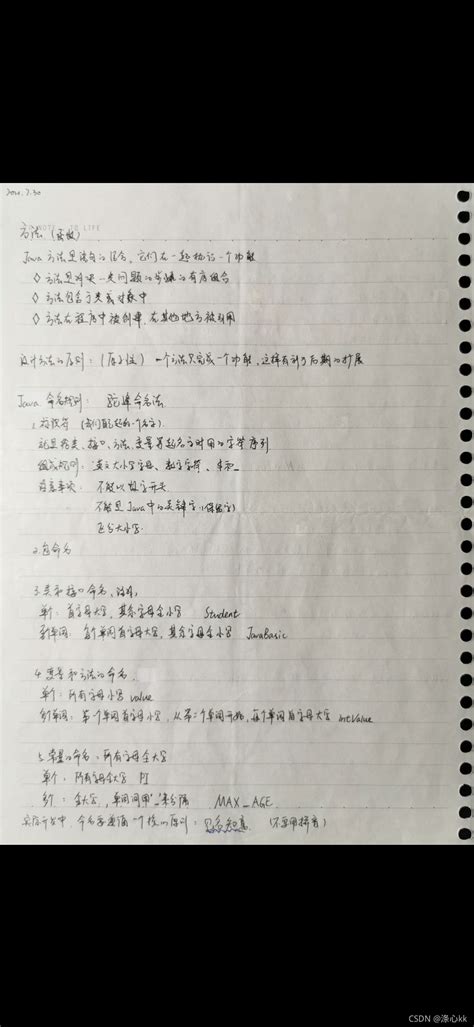 2021.7.30
方法 (函数)
Java方法是语句的集合, 它们在一起执行一个功能
◇ 方法是解决一类问题的步骤的有序组合
◇ 方法包含于类或对象中
◇ 方法在程序中被创建, 在其他地方被引用
设计方法的原则: (原子性) 一个方法只完成一个功能, 这样有利于后期的扩展
Java 命名规则: 驼峰命名法
1. 标识符 (我们取的一个名字).
就是给类、接口、方法、变量等起名字时用的字符序列
组成规则: 英文大小写字母、数字字符、$和_
注意事项: 不能以数字开头
不能是Java中的关键字 (保留字)
区分大小写
2. 包命名
3. 类和接口命名,
单个: 首字母大写, 其余字母全小写 Student
多个单词: 每个单词首字母大写, 其余字母全小写 JavaBasic
4. 变量和方法的命名.
单个: 所有字母小写 value
多个单词: 第一个单词首字母小写, 从第二个单词开始, 每个单词首字母大写 intValue
5. 常量的命名: 所有字母全大写
单个: 所有字母全大写 PI
多个: 全大写, 单词间用"_"来分隔 MAX_AGE.
实际开发中, 命名要遵循一个核心原则: 见名知意. (不要用拼音)
CSDN @涤心kk